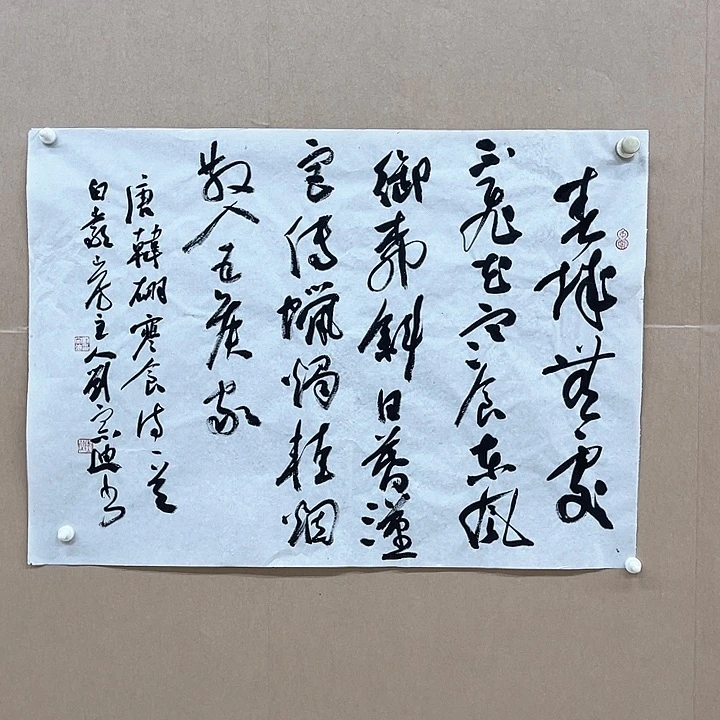 春城無處
不飛花寒食東風
御柳斜日暮漢
宮傳蠟燭輕烟
散入五侯家
唐韓翃寒食詩一首
白山房主人劉宗迪书